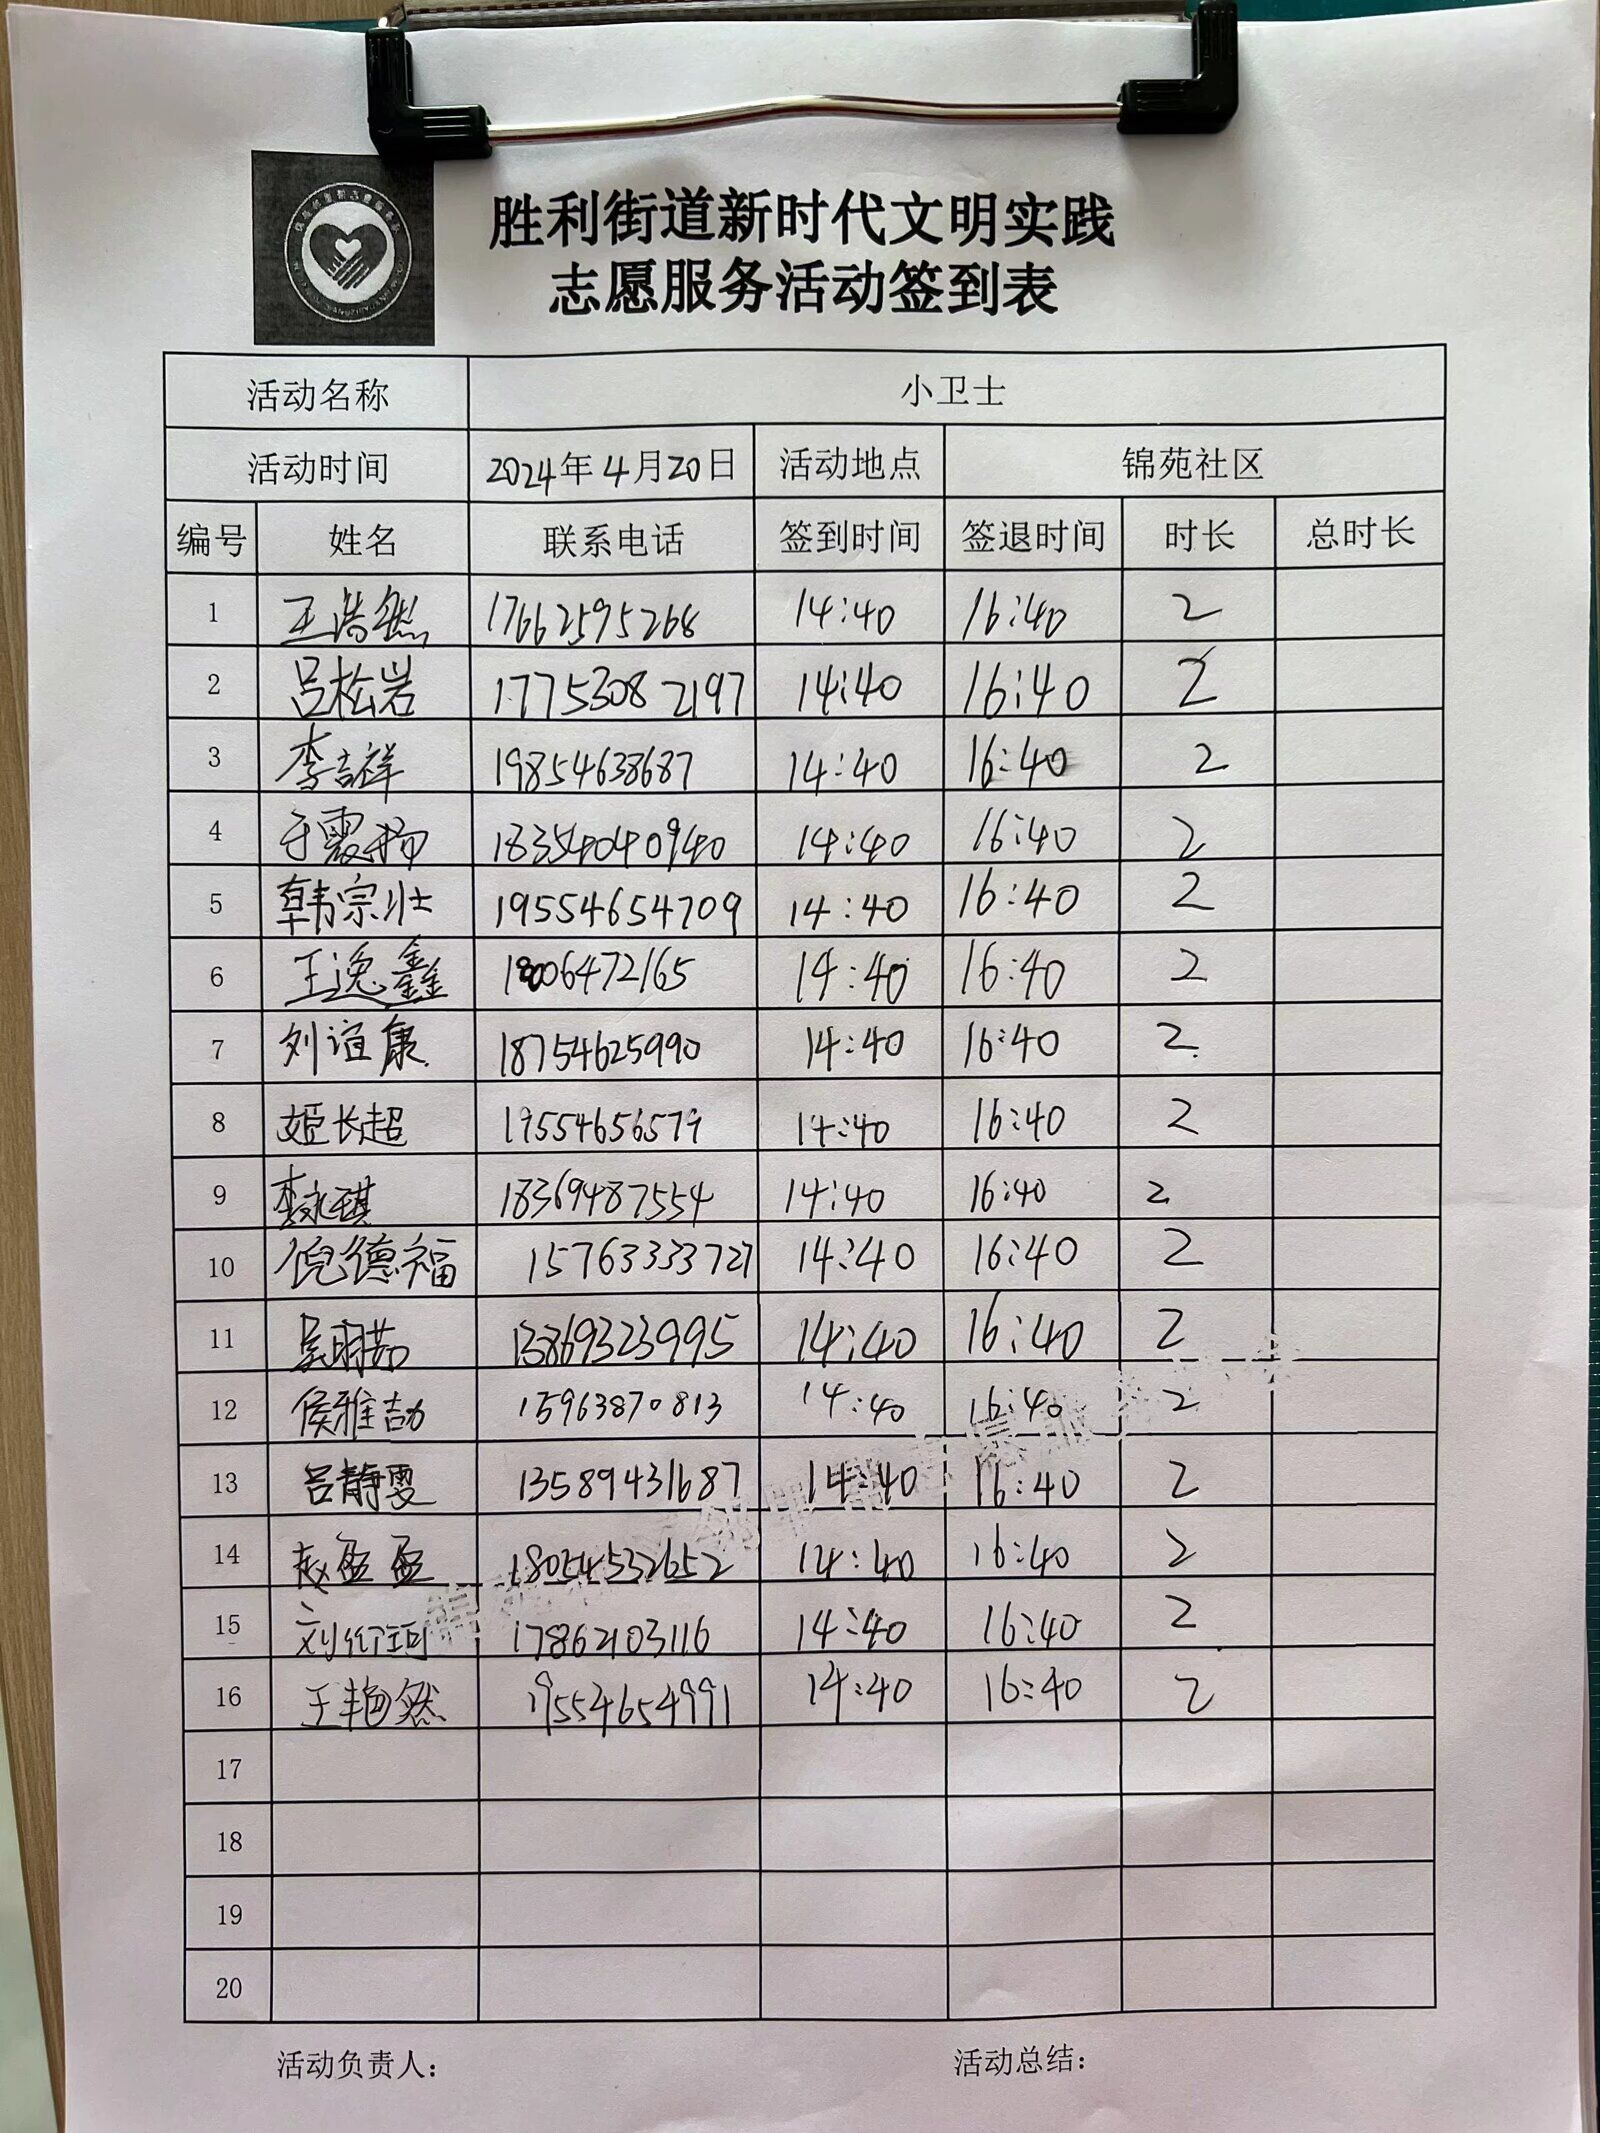 胜利街道新时代文明实践
志愿服务活动签到表
活动名称 小卫士
活动时间 2024年4月20日 活动地点 锦苑社区
编号 姓名 联系电话 签到时间 签退时间 时长 总时长
1 王浩然 17662595268 14:40 16:40 2
2 吕松岩 17753082197 14:40 16:40 2
3 李吉祥 19854638687 14:40 16:40 2
4 于震扬 18354040940 14:40 16:40 2
5 韩宗壮 19554654709 14:40 16:40 2
6 王逸鑫 18006472165 14:40 16:40 2
7 刘谊康 18754625990 14:40 16:40 2
8 姬长超 19554656579 14:40 16:40 2
9 李永琪 18369487554 14:40 16:40 2
10 倪德福 15763333727 14:40 16:40 2
11 吴明茹 13869323995 14:40 16:40 2
12 侯雅喆 15963870813 14:40 16:40 2
13 吕静雯 13589431687 14:40 16:40 2
14 赵盈盈 18054532652 14:40 16:40 2
15 刘 17862103116 14:40 16:40 2
16 王艳然 19554654991 14:40 16:40 2
17
18
19
20
活动负责人： 活动总结：